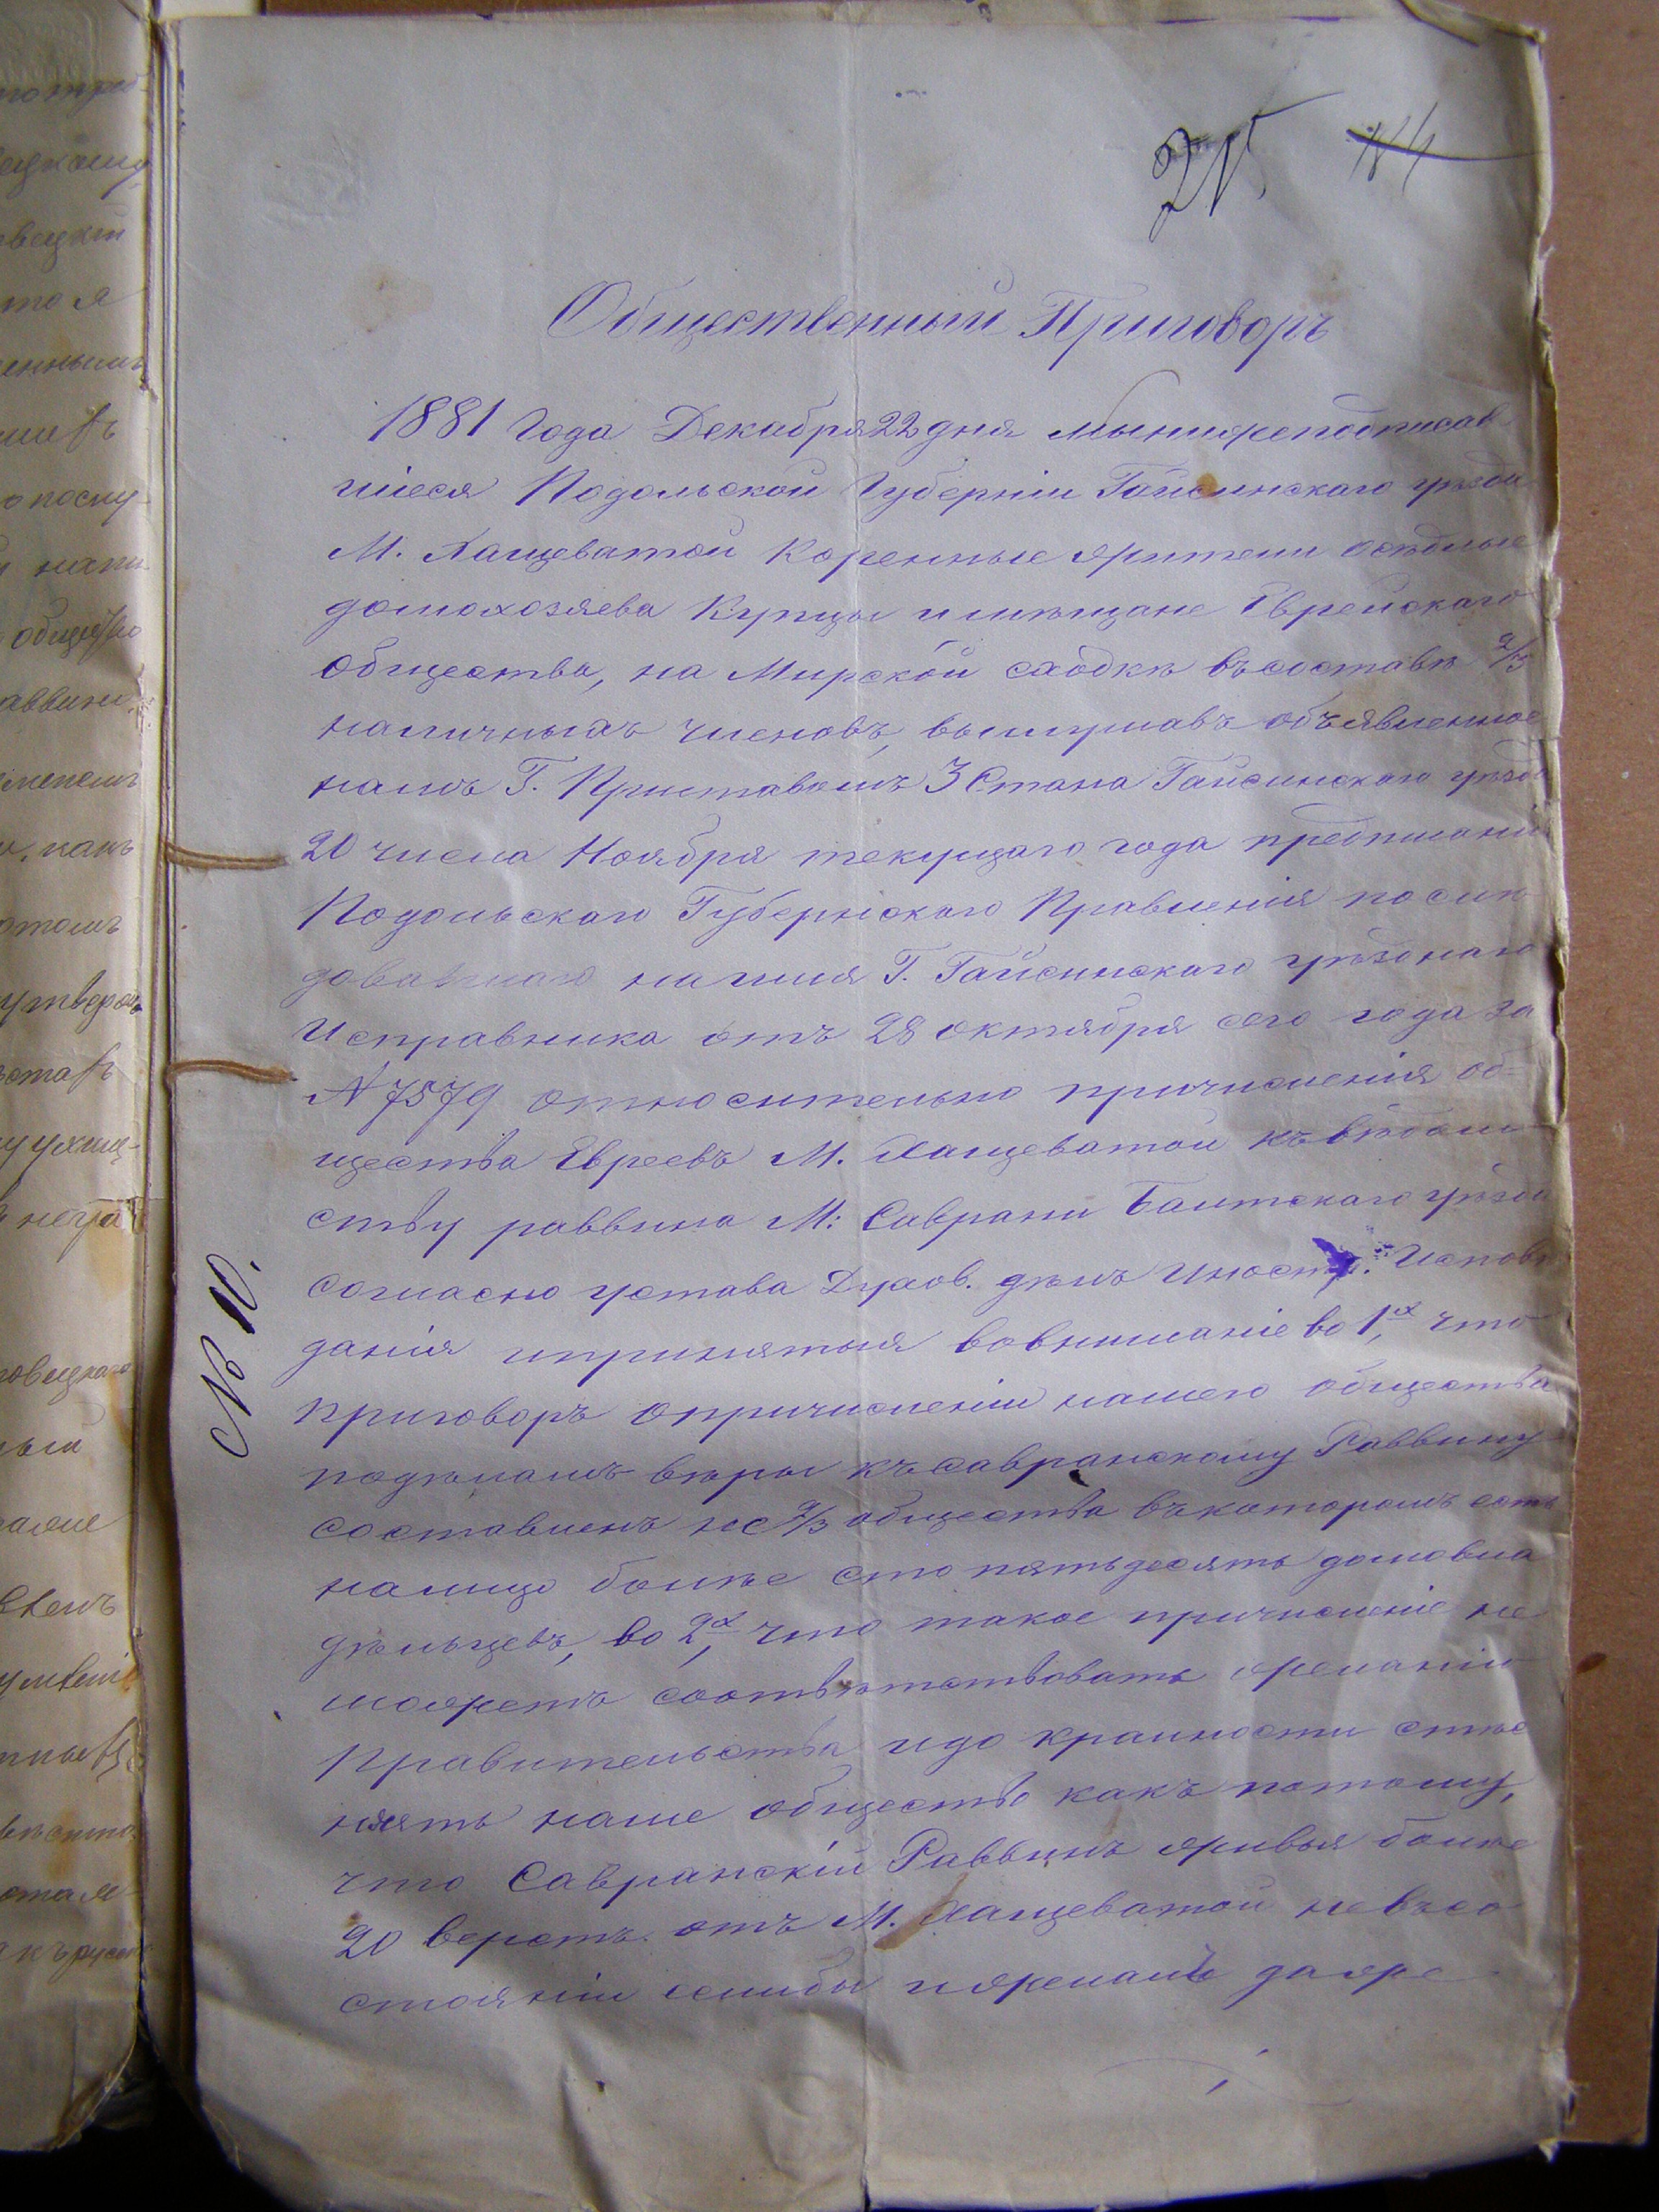 215
Общественный Приговоръ
1881 Года Декабря 22 дня мы нижеподписав
шіеся Подольской Губерніи Гайсинскаго уѣзда
М. Хащеватой Коренные жители осѣдлые
домохозяева Купцы и мѣщане Еврейскаго
общества, на Мирской сходкѣ въ составѣ 2/3
наличныхъ членовъ, выслушавъ объявленное
намъ Г. Приставомъ 3 Стана Гайсинскаго уѣзда
20 числа Ноября текущаго года предписаніе
Подольскаго Губернскаго Правленія послѣ
довавшаго на имя Г. Гайсинскаго уѣзднаго
Исправника отъ 28 октября сего года за
№ 7579 относительно причисленія об-
щества Евреевъ М. Хащеватой къ вѣдом
ству раввина М: Саврани Балтскаго уѣзда
согласно устава Духов. дѣлъ Иностр. Исповѣ
данія и принятыя во вниманіе во 1х, что
приговоръ о причисленіи нашего общества
по дѣламъ вѣры къ Савранскому Раввину
составленъ не 2/3 общества въ которомъ есть
на лицо болѣе сто пятьдесятъ домовла
дѣльцевъ, во 2х, что такое причисленіе не
можетъ соотвѣтствовать желанію
Правительства и до крайности стѣс
нять наше общество какъ потому,
что Савранскій Раввинъ живя болѣе
20 верстъ отъ М. Хащеватой не въ со
стояніи еслибы и желалъ даже
№ 10.